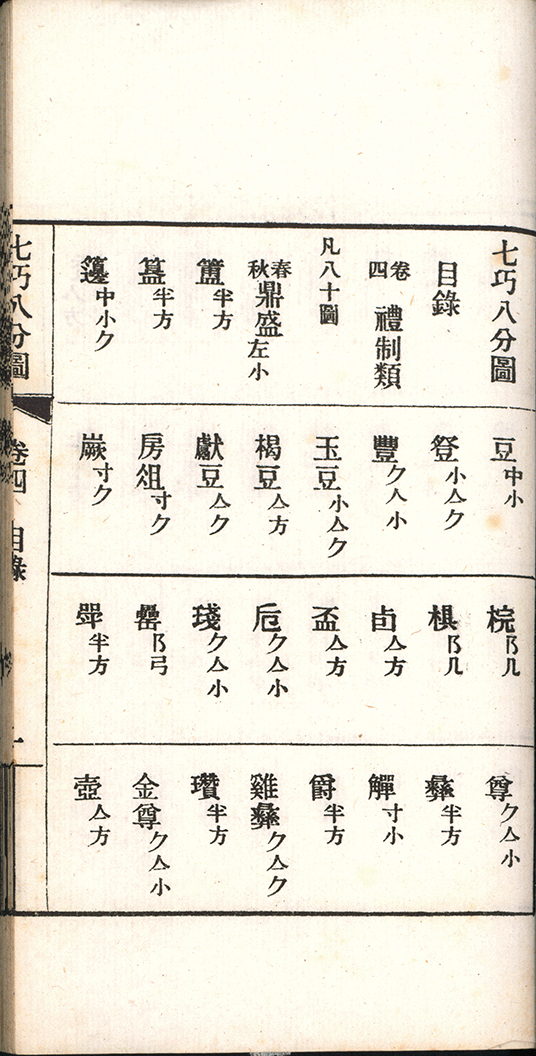 七巧八分圖
目錄
卷四 禮制類
凡八十圖
春秋鼎盛 左小
簠 半方
簋 半方
籩 中小ク
豆 中小
登 小亼ク
豐 ク人小
玉豆 小亼ク
楬豆 亼方
獻豆 亼ク
房俎 寸ク
嶡 寸ク
梡 阝几
椇 阝几
卣 亼方
盃 亼方
卮 ク亼小
琖 ク亼小
罍 阝弓
斝 半方
尊 ク亼小
彝 半方
觶 寸小
爵 半方
雞彝 ク亼ク
瓚 半方
金尊 ク亼小
壺 亼方
七巧八分圖 卷四 目錄